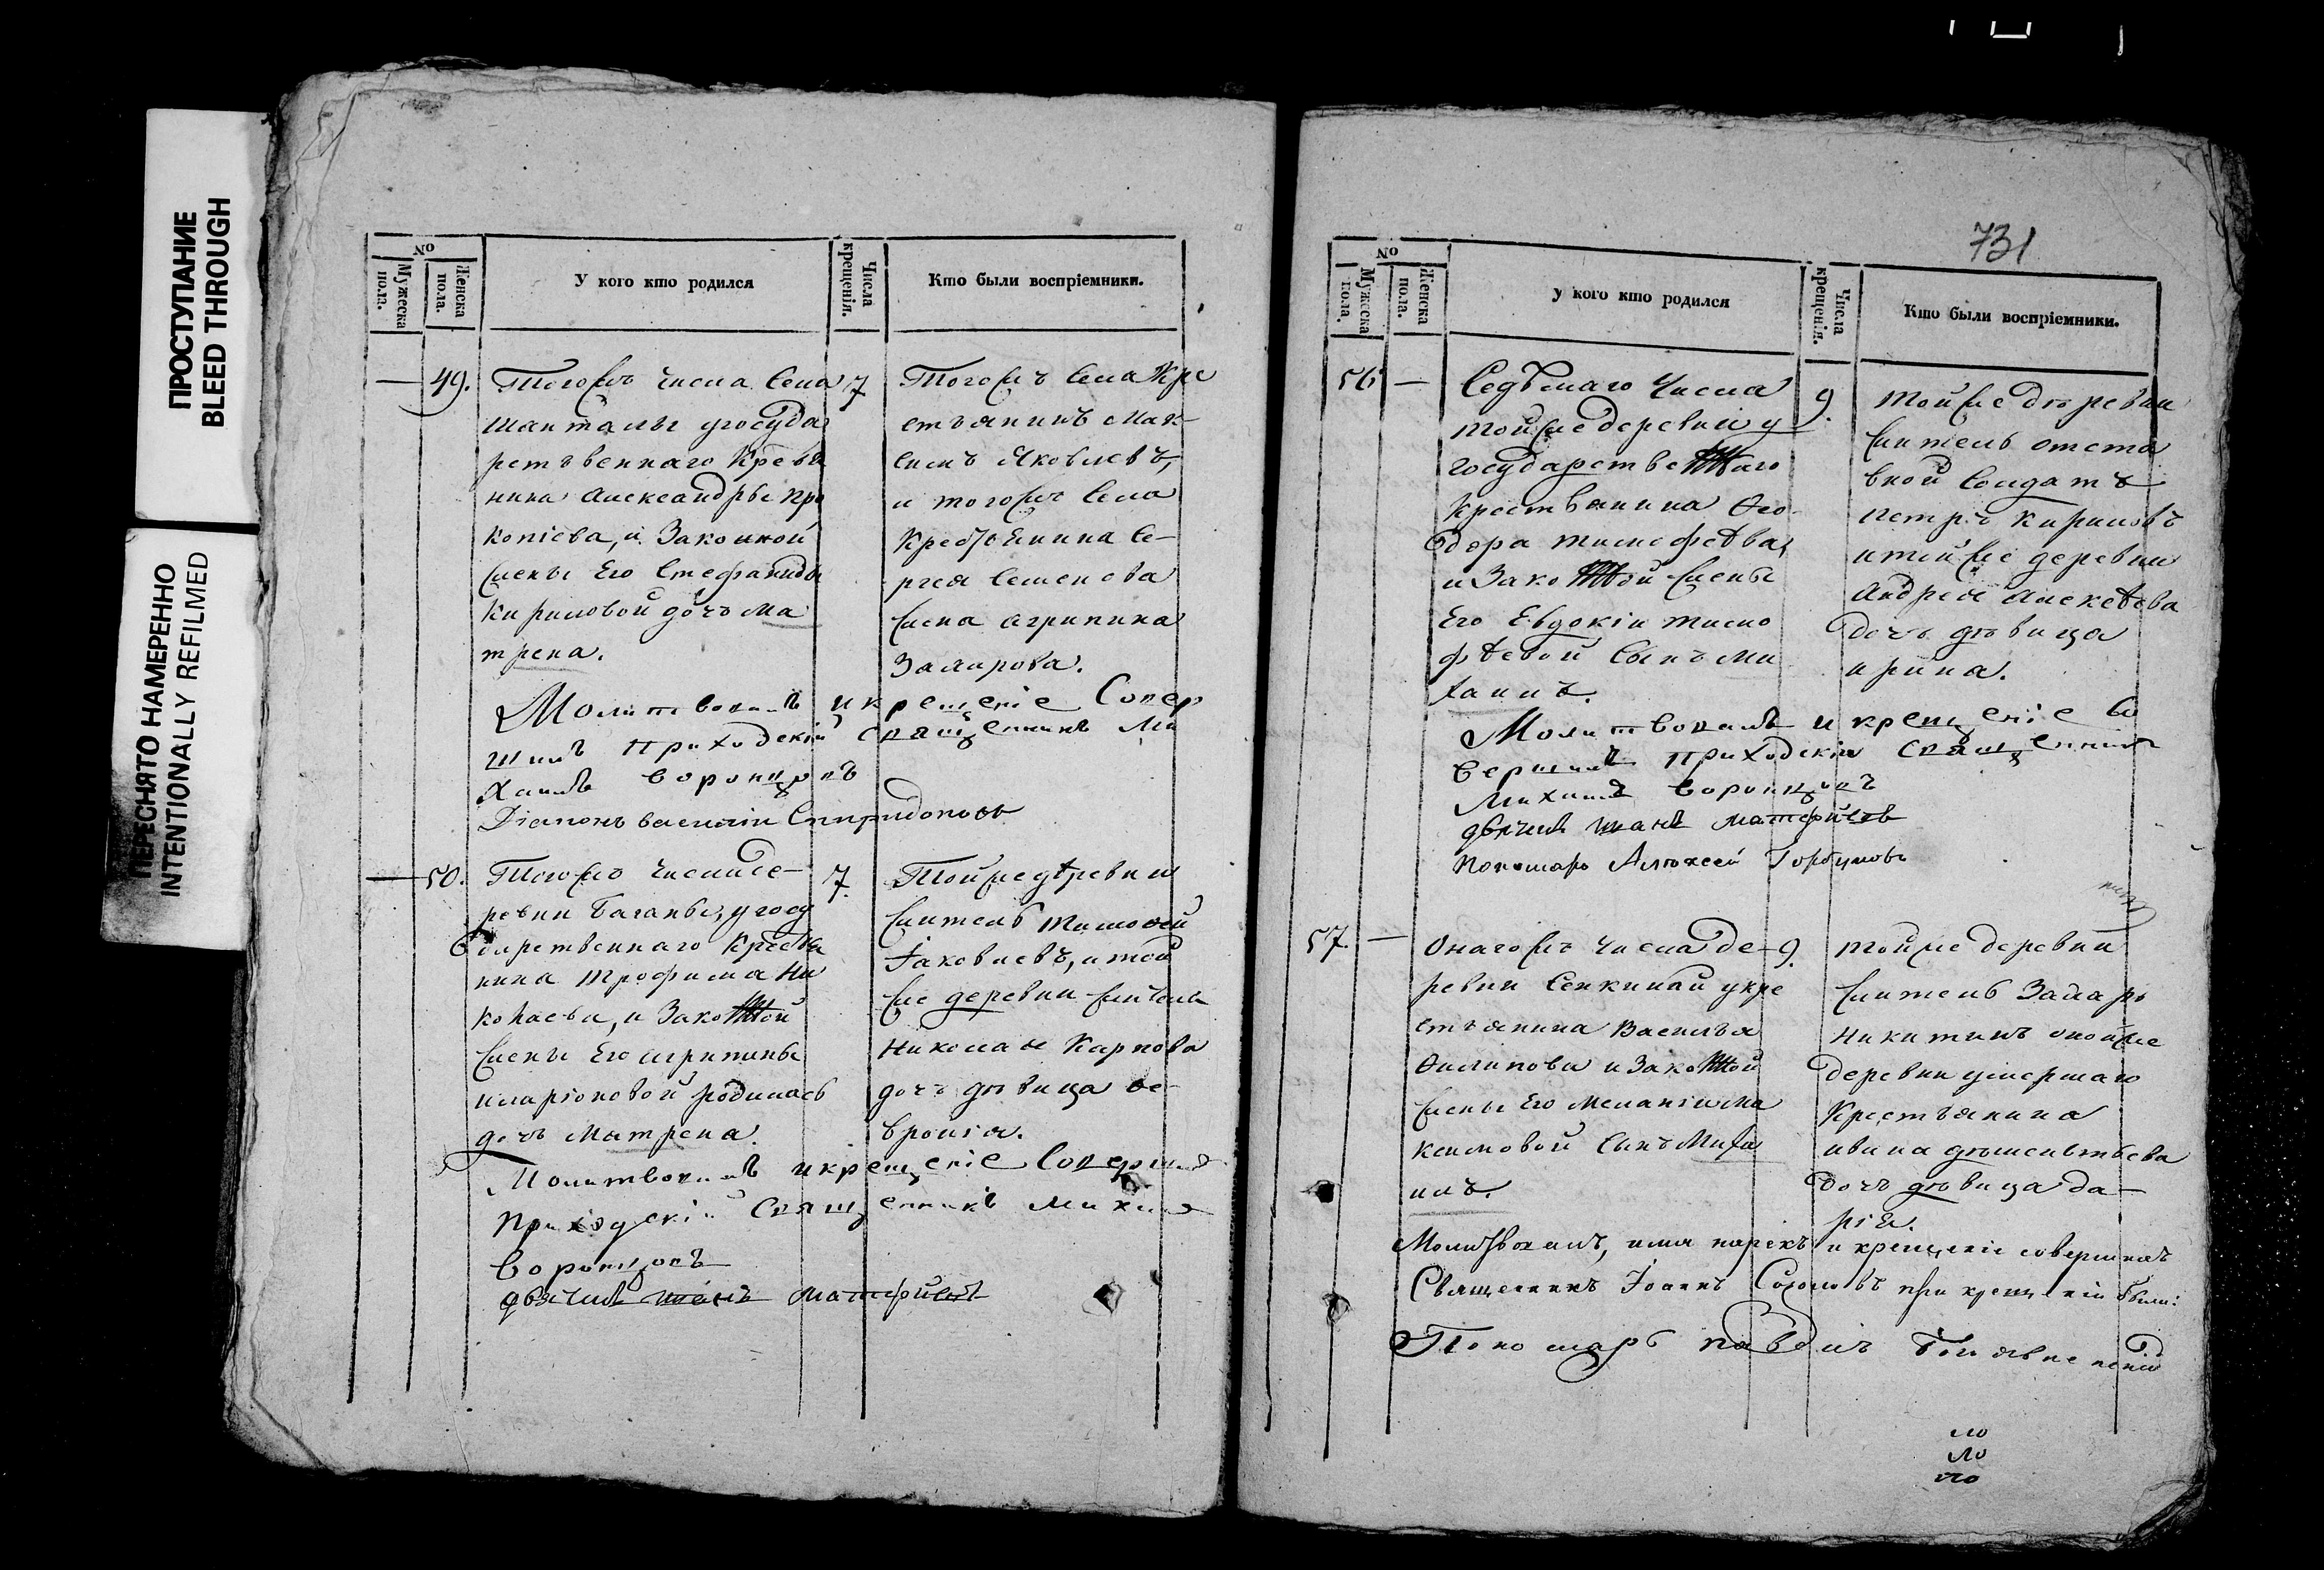 ПРОСТУПАНИЕ
BLEED THROUGH
ПЕРЕСНЯТО НАМЕРЕННО
INTENTIONALLY REFILMED
№
Мужеска пола.
Женска пола.
У кого кто родился
Числа крещенія.
Кто были воспріемники.
— 49.
Тогожъ числа села
шанталы угосуда
рственнаго Кресья
нина Александры про
копіева, и Законной
жены Его Стефаниды
Кириловой дочь ма
трена.
7
Тогожъ села Кре
стьянинъ мак-
симъ Яковлевъ,
и тогожъ села
Кресьянина Се-
ргея Семенова
жена агрипина
Захарова.
Молитвовалъ и крещеніе Совер
шилъ приходскій Священникъ Ми
хаилъ воронцовъ
Діаконъ василій Спиридоновъ
— 50.
Тогожъ числа де-
ревни Баганы, угосу
дарственнаго Кресья
нина трофима Ни
колаева, и Законной
жены Его агрипины
иларіоновой родилась
дочь Матрена.
7.
Тойже деревни
житель тимоѳей
Іаковлевъ, и той
же деревни жителя
Николая Карпова
дочь дѣвица ѳе-
вронія.
Молитвовалъ и крещеніе Совершилъ
приходскій Священникъ Михаилъ
воронцовъ
дьячекъ Иванъ Матфиевъ
731
№
Мужеска пола.
Женска пола.
У кого кто родился
Числа крещенія.
Кто были воспріемники.
56 —
Седьмаго числа
тойже деревни у
государственнаго
крестьянина Ѳео
дора тимофѣева,
и Законной жены
Его Евдокіи тимо
фѣевой сынъ ми
хаилъ.
9.
тойже деревни
житель отста
вной солдатъ
петръ кириловъ
и тойже деревни
андрея алексѣева
дочь дѣвица
ирина.
Молитвовалъ и крещеніе Со
вершилъ приходскій Священникъ
Михаилъ воронцовъ
дьячекъ Иванъ Матфиевъ
пономарь Алексей Горбуновъ
57. —
Онагожъ числа де-
ревни Сенкиной укре
стьянина Василья
Филипова и Законной
жены Его меланіи ма
ксимовой сынъ Миха
илъ.
9.
тойже деревни
житель Захаръ
Никитинъ онойже
деревни умершаго
Крестьянина
ивана
дочь дѣвица да-
рія.
Молитвовалъ, имя нарекъ и крещеніе совершилъ
Священникъ Іоаннъ Соколовъ при крещеніи были:
Пономарь павелъ